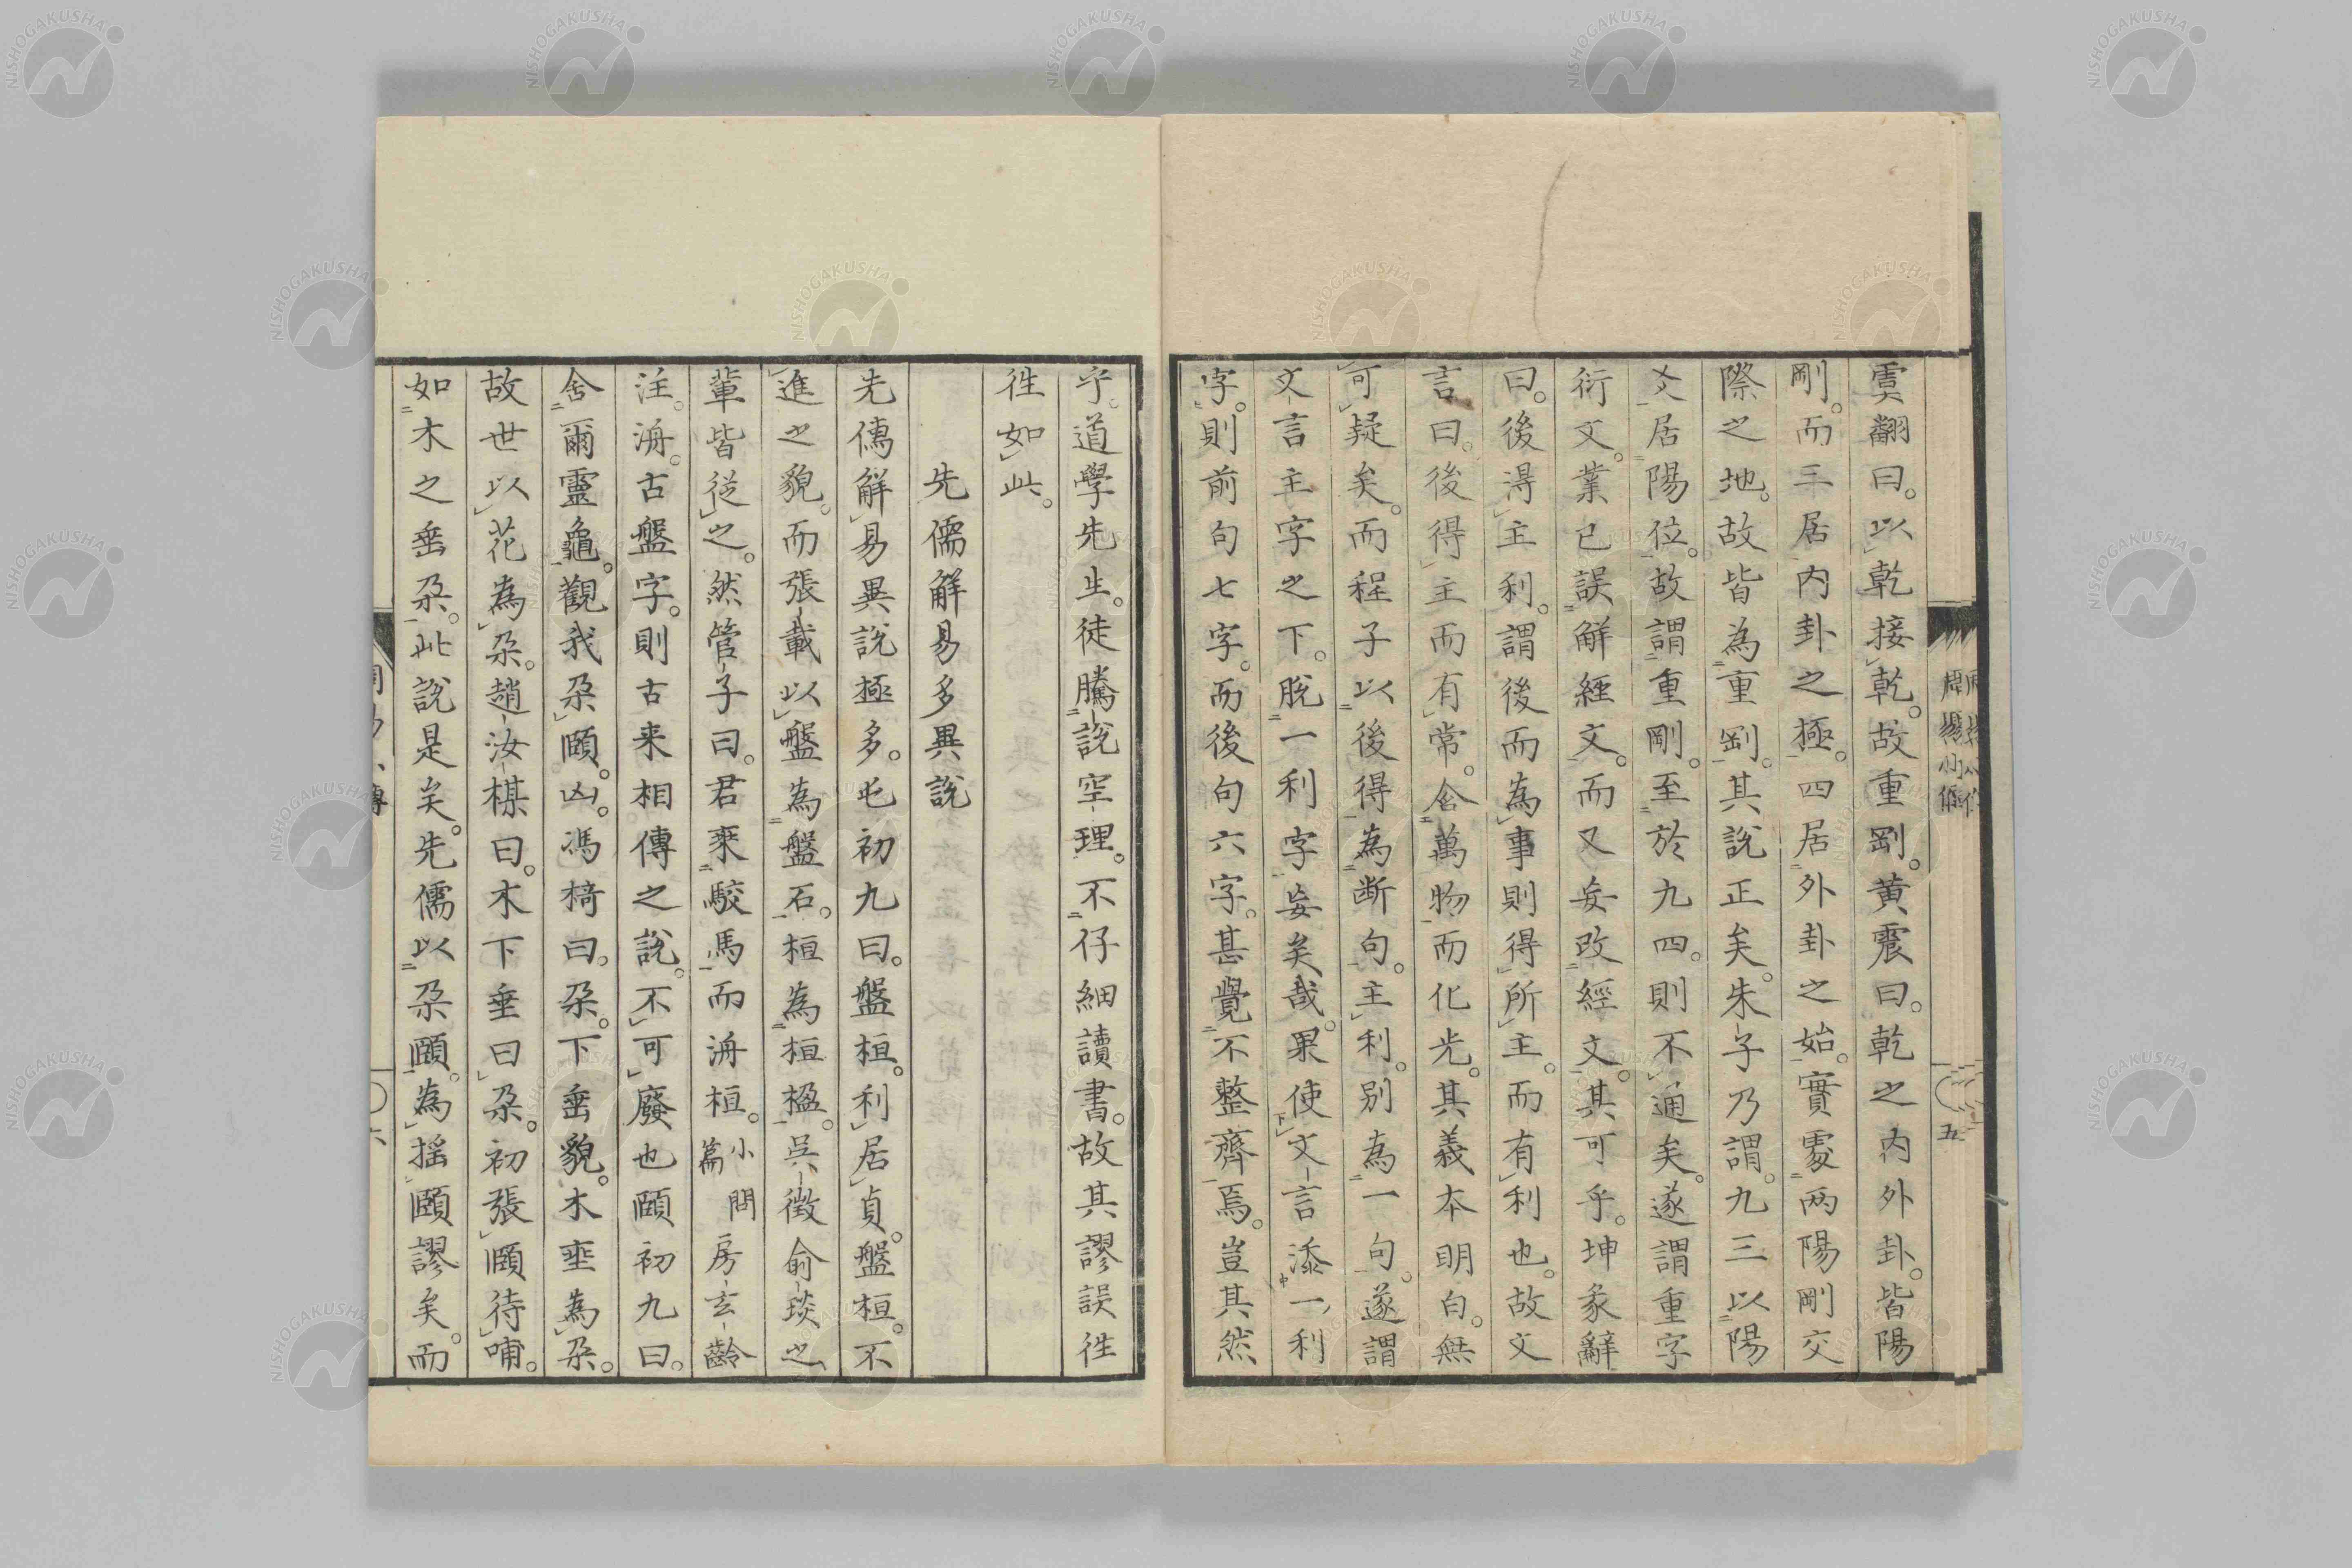 虞翻曰。以乾接乾。故重剛。黄震曰。乾之内外卦。皆陽
剛。而三居内卦之極。四居外卦之始。實處両陽剛交
際之地。故皆為重剛。其說正矣。朱子乃謂。九三以陽
爻居陽位。故謂重剛。至於九四。則不通矣。遂謂重字
衍文。業已誤解經文。而又妄改經文。其可乎。坤彖辭
曰。後得主利。謂後而為事則得所主。而有利也。故文
言曰。後得主而有常。含萬物而化光。其義本明白。無
可疑矣。而程子以後得為断句。主利。別為一句。遂謂
文言主字之下。脫一利字。妄矣哉。果使文言添一利
字。則前句七字。而後句六字。甚覺不整齊焉。豈其然
五
乎。道學先生。徒騰說空理。不仔細讀書。故其謬誤徃
徃如此。
先儒解易多異說
先儒解易異說極多。屯初九曰。盤桓。利居貞。盤桓。不
進之貌。而張載以盤為盤石。桓為桓楹。呉徵俞琰之
輩皆從之。然管子曰。君乗駮馬而洀桓。小問篇 房玄齡
注。洀。古盤字。則古来相傳之說。不可廢也頤初九曰。
舍爾靈龜。觀我朶頤。凶。馮椅曰。朶。下垂貌。木垂為朶。
故世以花為朶。趙汝楳曰。木下垂曰朶。初張頤待哺。
如木之垂朶。此說是矣。先儒以朶頤。為揺頤謬矣。而